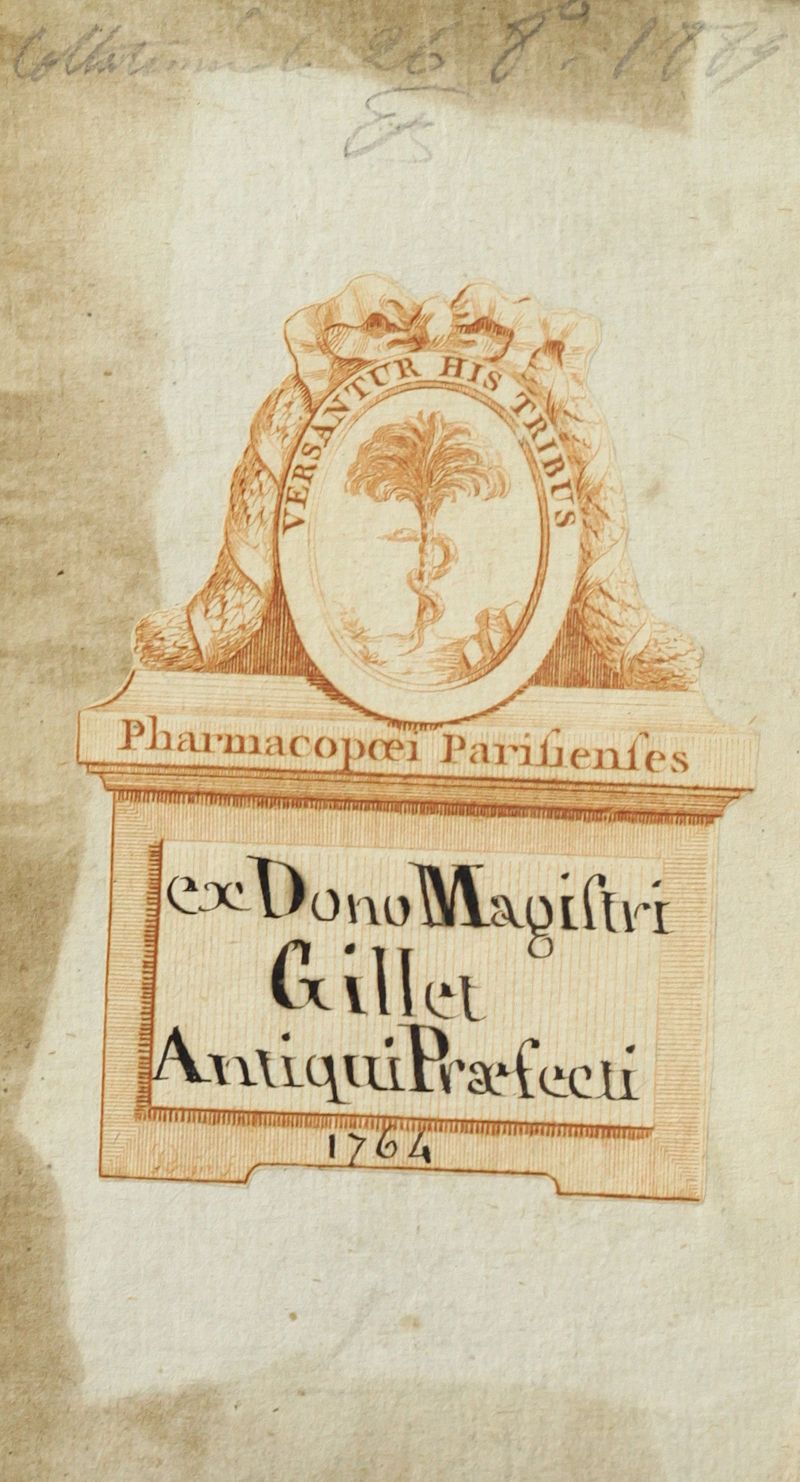 26 8º. 1889
VERSANTUR HIS TRIBUS
Pharmacopœi Pariſienſes
ex Dono Magiſtri
Gillet
Antiqui Præfecti
1764